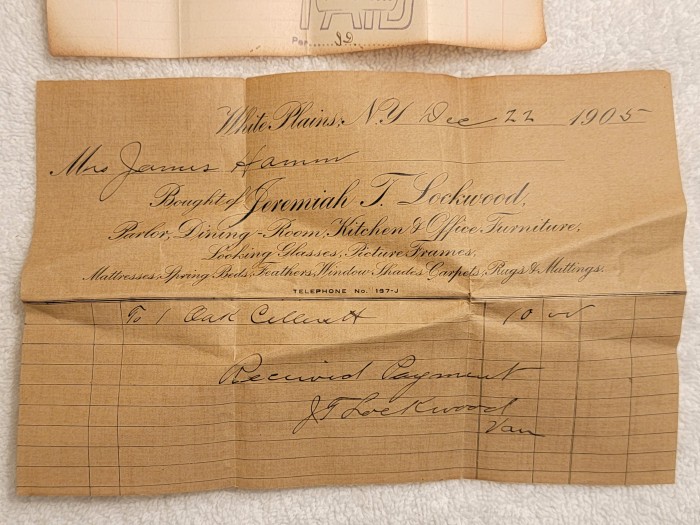 PAID
Per
White Plains, N.Y. Dec 22 1905
Mrs James Hamm
Bought of Jeremiah T. Lockwood,
Parlor, Dining-Room, Kitchen & Office Furniture,
Looking Glasses, Picture Frames,
Mattresses, Spring Beds, Feathers, Window Shades, Carpets, Rugs & Mattings.
TELEPHONE No. 197-J
To 1 Oak Cellerett 10 00
Received Payment
J T Lockwood